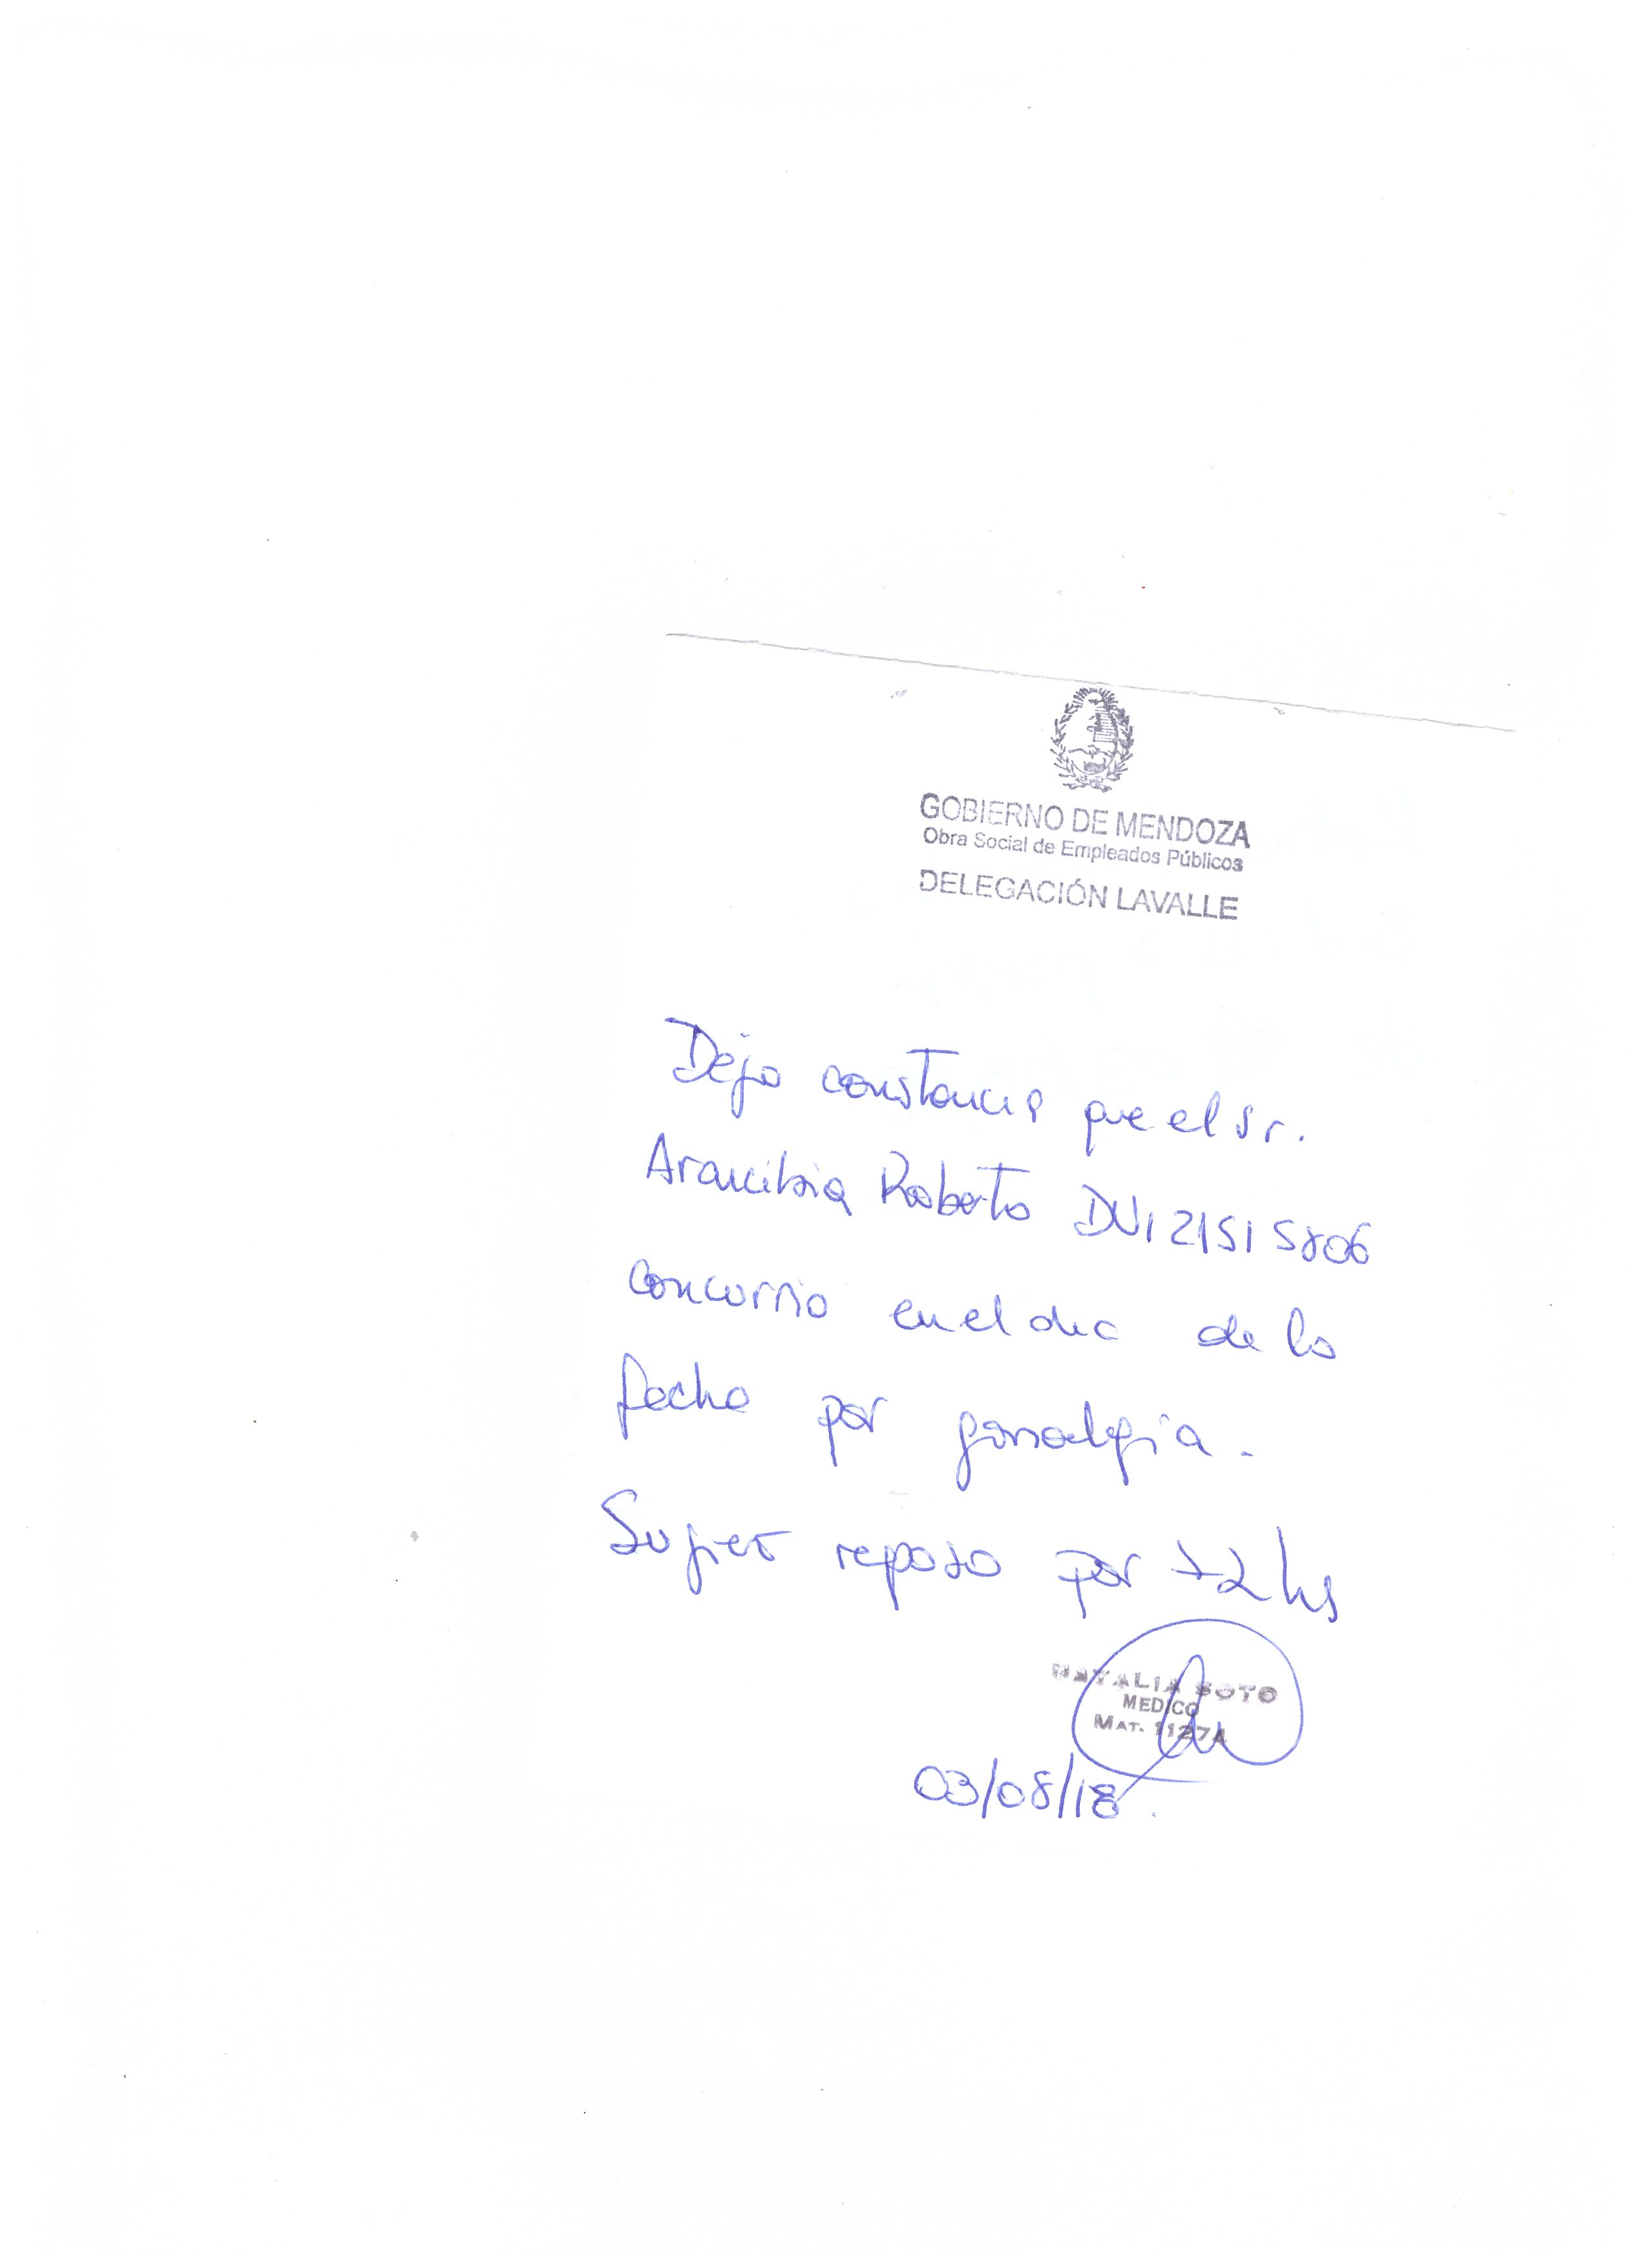 GOBIERNO DE MENDOZA
Obra Social de Empleados Públicos
DELEGACIÓN LAVALLE
Dejo constancia que el Sr.
Arancibia Roberto DNI 21515806
concurrio en el dia de la
fecha por gonalgia.
Sugiero reposo por 72 hs
NATALIA SOTO
MEDICO
MAT. 11274
03/08/18.